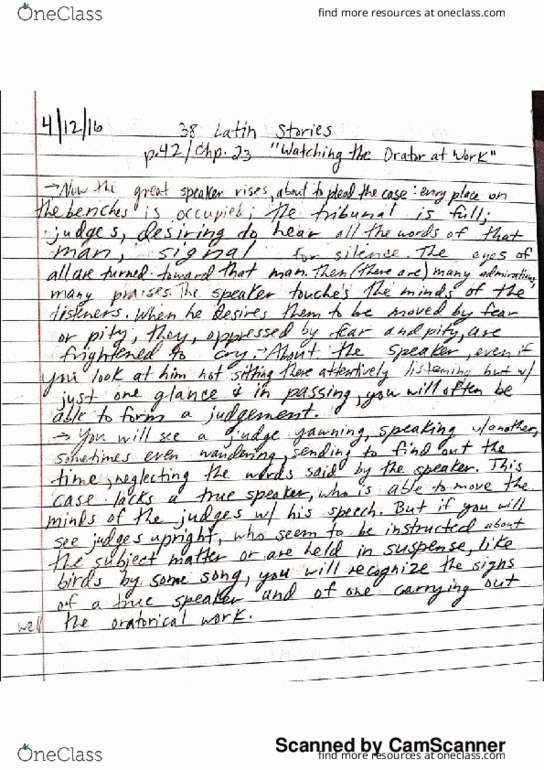 OneClass
find more resources at oneclass.com
4/12/16
38 Latin Stories
p.42/Chp. 23 "Watching the Orator at Work"
→Now the great speaker rises, about to plead the case: every place on
the benches is occupied; the tribunal is full;
judges, desiring to hear all the words of that
man, signal for silence. The eyes of
all are turned toward that man. Then (there are) many admirations,
many praises. The speaker touches the minds of the
listeners. When he desires them to be moved by fear
or pity, they, oppressed by fear and pity, are
frightened to cry.→About the speaker, even if
you look at him not sitting there attentively listening but w/
just one glance & in passing, you will often be
able to form a judgement.
→ You will see a judge yawning, speaking w/another,
sometimes even wandering, sending to find out the
time, neglecting the words said by the speaker. This
case lacks a true speaker, who is able to move the
minds of the judges w/ his speech. But if you will
see judges upright, who seem to be instructed about
the subject matter or are held in suspense, like
birds by some song, you will recognize the signs
of a true speaker and of one carrying out
well the oratorical work.
Scanned by CamScanner
OneClass
find more resources at oneclass.com